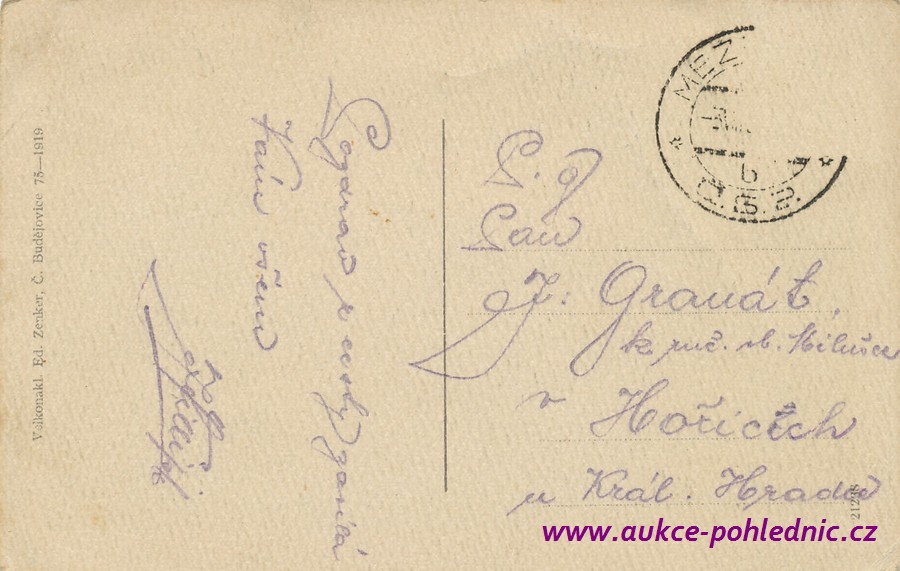 Velkonakl. Ed. Zenker, Č. Budějovice 75—1919
Pozdrav z cesty zasílá
Vám všem
MEZ
6
Č.S.P.
P. J.
Pan
J: Granát,
k ruč. sl. Miluše
v Hořicích
u Král. Hradce
212
www.aukce-pohlednic.cz